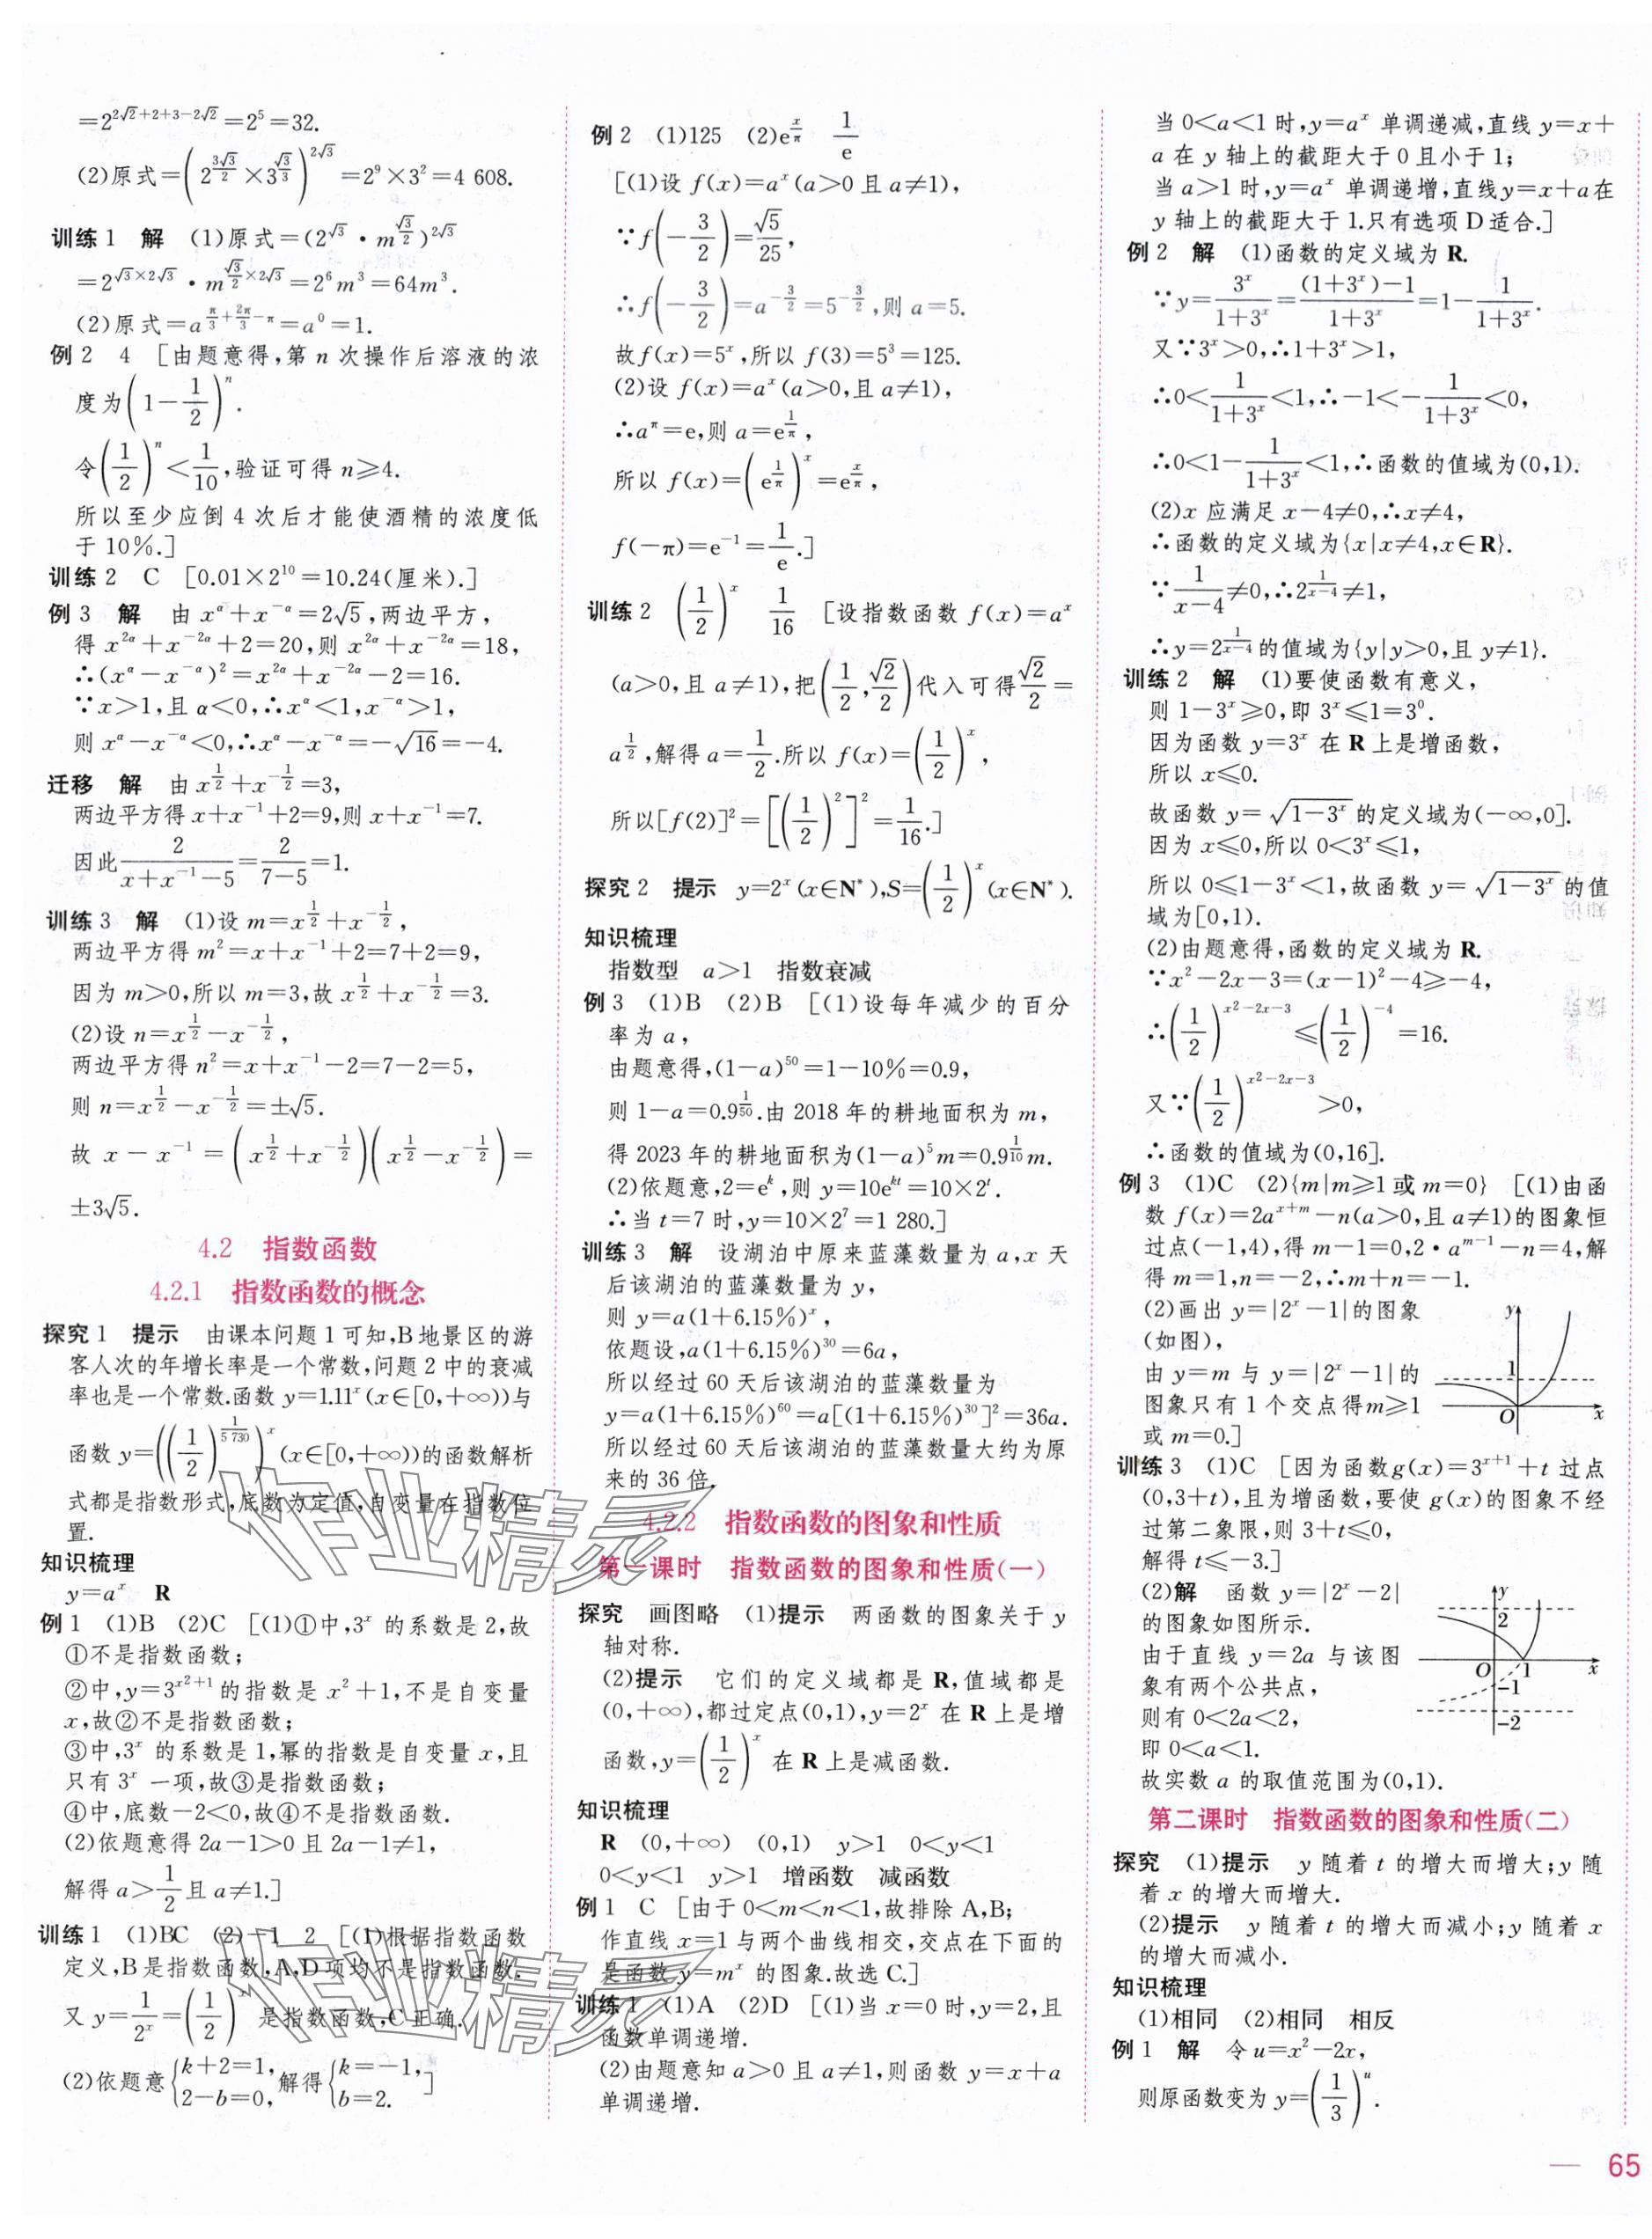 =2^{2√2+2+3-2√2}=2^5=32.
(2)原式=(2^{3√3/2}×3^{√3/3})^{2√3}=2^9×3^2=4 608.
训练1 解 (1)原式=(2^{√3}·m^{√3/2})^{2√3}
=2^{√3×2√3}·m^{√3/2×2√3}=2^6m^3=64m^3.
(2)原式=a^{π/3+2π/3-π}=a^0=1.
例2 4 [由题意得,第n次操作后溶液的浓
度为(1-1/2)^n.
令(1/2)^n<1/10,验证可得n≥4.
所以至少应倒4次后才能使酒精的浓度低
于10%.]
训练2 C [0.01×2^{10}=10.24(厘米).]
例3 解 由x^α+x^{-α}=2√5,两边平方,
得x^{2α}+x^{-2α}+2=20,则x^{2α}+x^{-2α}=18,
∴(x^α-x^{-α})^2=x^{2α}+x^{-2α}-2=16.
∵x>1,且α<0,∴x^α<1,x^{-α}>1,
则x^α-x^{-α}<0,∴x^α-x^{-α}=-√16=-4.
迁移 解 由x^{1/2}+x^{-1/2}=3,
两边平方得x+x^{-1}+2=9,则x+x^{-1}=7.
因此2/(x+x^{-1}-5)=2/(7-5)=1.
训练3 解 (1)设m=x^{1/2}+x^{-1/2},
两边平方得m^2=x+x^{-1}+2=7+2=9,
因为m>0,所以m=3,故x^{1/2}+x^{-1/2}=3.
(2)设n=x^{1/2}-x^{-1/2},
两边平方得n^2=x+x^{-1}-2=7-2=5,
则n=x^{1/2}-x^{-1/2}=±√5.
故x-x^{-1}=(x^{1/2}+x^{-1/2})(x^{1/2}-x^{-1/2})=
±3√5.
4.2 指数函数
4.2.1 指数函数的概念
探究1 提示 由课本问题1可知,B地景区的游
客人次的年增长率是一个常数,问题2中的衰减
率也是一个常数.函数y=1.11^x(x∈[0,+∞))与
函数y=((1/2)^{1/5 730})^x(x∈[0,+∞))的函数解析
式都是指数形式,底数为定值,自变量在指数位
置.
知识梳理
y=a^x R
例1 (1)B (2)C [(1)①中,3^x的系数是2,故
①不是指数函数;
②中,y=3^{x^2+1}的指数是x^2+1,不是自变量
x,故②不是指数函数;
③中,3^x的系数是1,幂的指数是自变量x,且
只有3^x一项,故③是指数函数;
④中,底数-2<0,故④不是指数函数.
(2)依题意得2a-1>0且2a-1≠1,
解得a>1/2且a≠1.]
训练1 (1)BC (2)-1 2 [(1)根据指数函数
定义,B是指数函数,A,D项均不是指数函数.
又y=1/2^x=(1/2)^x是指数函数,C正确.
(2)依题意{k+2=1, 2-b=0,解得{k=-1, b=2.]
例2 (1)125 (2)e^{x/π} 1/e
[(1)设f(x)=a^x(a>0且a≠1),
∵f(-3/2)=√5/25,
∴f(-3/2)=a^{-3/2}=5^{-3/2},则a=5.
故f(x)=5^x,所以f(3)=5^3=125.
(2)设f(x)=a^x(a>0,且a≠1),
∴a^π=e,则a=e^{1/π},
所以f(x)=(e^{1/π})^x=e^{x/π},
f(-π)=e^{-1}=1/e.]
训练2 (1/2)^x 1/16 [设指数函数f(x)=a^x
(a>0,且a≠1),把(1/2,√2/2)代入可得√2/2=
a^{1/2},解得a=1/2.所以f(x)=(1/2)^x,
所以[f(2)]^2=[(1/2)^2]^2=1/16.]
探究2 提示 y=2^x(x∈N*),S=(1/2)^x(x∈N*).
知识梳理
指数型 a>1 指数衰减
例3 (1)B (2)B [(1)设每年减少的百分
率为a,
由题意得,(1-a)^{50}=1-10%=0.9,
则1-a=0.9^{1/50}.由2018年的耕地面积为m,
得2023年的耕地面积为(1-a)^5m=0.9^{1/10}m.
(2)依题意,2=e^k,则y=10e^{kt}=10×2^t.
∴当t=7时,y=10×2^7=1 280.]
训练3 解 设湖泊中原来蓝藻数量为a,x天
后该湖泊的蓝藻数量为y,
则y=a(1+6.15%)^x,
依题设,a(1+6.15%)^{30}=6a,
所以经过60天后该湖泊的蓝藻数量为
y=a(1+6.15%)^{60}=a[(1+6.15%)^{30}]^2=36a.
所以经过60天后该湖泊的蓝藻数量大约为原
来的36倍.
4.2.2 指数函数的图象和性质
第一课时 指数函数的图象和性质(一)
探究 画图略 (1)提示 两函数的图象关于y
轴对称.
(2)提示 它们的定义域都是R,值域都是
(0,+∞),都过定点(0,1),y=2^x在R上是增
函数,y=(1/2)^x在R上是减函数.
知识梳理
R (0,+∞) (0,1) y>1 0<y<1
0<y<1 y>1 增函数 减函数
例1 C [由于0<m<n<1,故排除A,B;
作直线x=1与两个曲线相交,交点在下面的
是函数y=m^x的图象.故选C.]
训练1 (1)A (2)D [(1)当x=0时,y=2,且
函数单调递增.
(2)由题意知a>0且a≠1,则函数y=x+a
单调递增.
当0<a<1时,y=a^x单调递减,直线y=x+
a在y轴上的截距大于0且小于1;
当a>1时,y=a^x单调递增,直线y=x+a在
y轴上的截距大于1.只有选项D适合.]
例2 解 (1)函数的定义域为R.
∵y=3^x/(1+3^x)=((1+3^x)-1)/(1+3^x)=1-1/(1+3^x).
又∵3^x>0,∴1+3^x>1,
∴0<1/(1+3^x)<1,∴-1<-1/(1+3^x)<0,
∴0<1-1/(1+3^x)<1,∴函数的值域为(0,1).
(2)x应满足x-4≠0,∴x≠4,
∴函数的定义域为{x|x≠4,x∈R}.
∵1/(x-4)≠0,∴2^{1/(x-4)}≠1,
∴y=2^{1/(x-4)}的值域为{y|y>0,且y≠1}.
训练2 解 (1)要使函数有意义,
则1-3^x≥0,即3^x≤1=3^0.
因为函数y=3^x在R上是增函数,
所以x≤0.
故函数y=√(1-3^x)的定义域为(-∞,0].
因为x≤0,所以0<3^x≤1,
所以0≤1-3^x<1,故函数y=√(1-3^x)的值
域为[0,1).
(2)由题意得,函数的定义域为R.
∵x^2-2x-3=(x-1)^2-4≥-4,
∴(1/2)^{x^2-2x-3}≤(1/2)^{-4}=16.
又∵(1/2)^{x^2-2x-3}>0,
∴函数的值域为(0,16].
例3 (1)C (2){m|m≥1或m=0} [(1)由函
数f(x)=2a^{x+m}-n(a>0,且a≠1)的图象恒
过点(-1,4),得m-1=0,2·a^{m-1}-n=4,解
得m=1,n=-2,∴m+n=-1.
(2)画出y=|2^x-1|的图象
(如图),
由y=m与y=|2^x-1|的
图象只有1个交点得m≥1
或m=0.]
y
1
O
x
训练3 (1)C [因为函数g(x)=3^{x+1}+t过点
(0,3+t),且为增函数,要使g(x)的图象不经
过第二象限,则3+t≤0,
解得t≤-3.]
(2)解 函数y=|2^x-2|
的图象如图所示.
由于直线y=2a与该图
象有两个公共点,
则有0<2a<2,
即0<a<1.
故实数a的取值范围为(0,1).
y
2
O 1 x
-1
-2
第二课时 指数函数的图象和性质(二)
探究 (1)提示 y随着t的增大而增大;y随
着x的增大而增大.
(2)提示 y随着t的增大而减小;y随着x
的增大而减小.
知识梳理
(1)相同 (2)相同 相反
例1 解 令u=x^2-2x,
则原函数变为y=(1/3)^u.
65
作业精灵
作业精灵